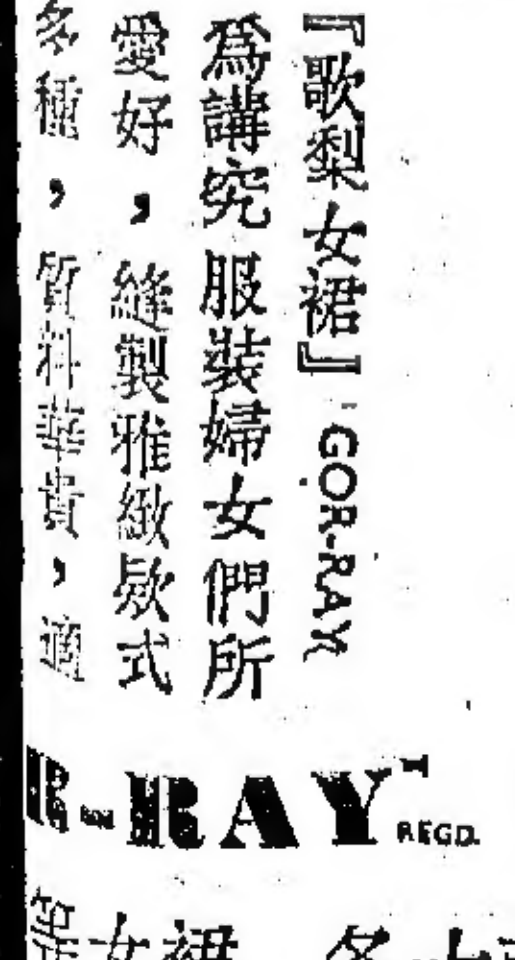 『歌梨女裙』 GOR-RAY
為講究服裝婦女們所
愛好，縫製雅緻款式
多種，質料華貴，適
R-RAY REGD.
女裙